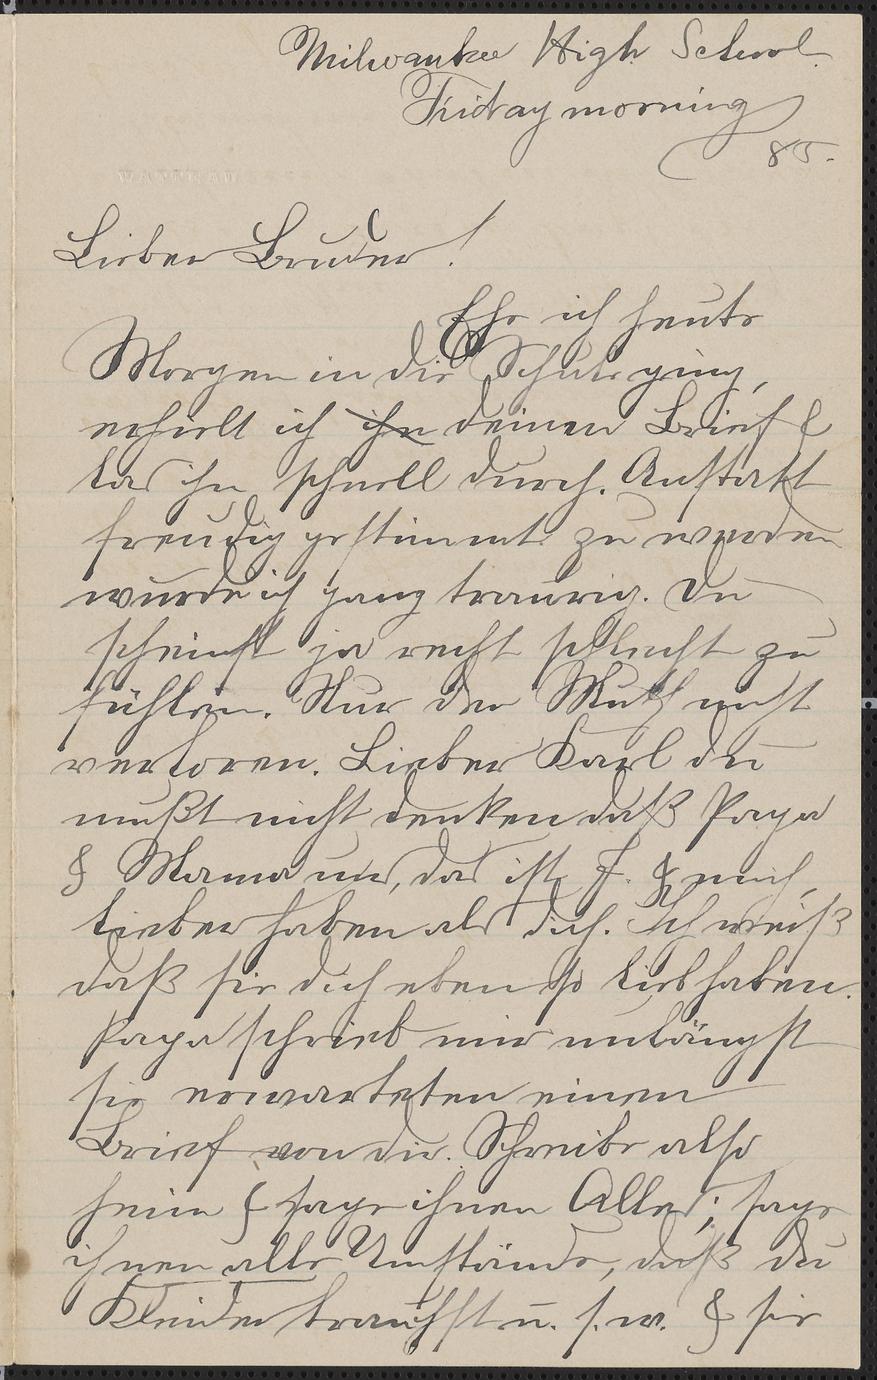 Milwaukee High School.
Friday morning
85.
Lieber Bruder!
Ehe ich heute
Morgen in die Schule ging,
erhielt ich ihn deinen Brief &
las ihn schnell durch. Anstatt
freudig gestimmt zu werden
wurde ich ganz traurig. Du
scheinst ja recht schlecht zu
fühlen. Nur den Muth nicht
verloren. Lieber Karl du
mußt nicht denken daß Papa
& Mama uns, das ist F. & mich,
lieber haben als dich. Ich weiß
daß sie dich eben so lieb haben.
Papa schrieb mir unlängst
sie erwarteten einen
Brief von dir. Schreibe also
heim & sage ihnen Alles; sage
ihnen alle Umstände, daß du
Kleider brauchst u. s. w. & sie